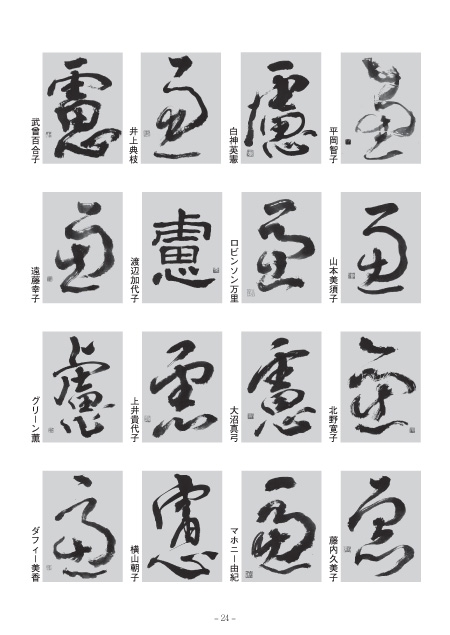 平岡智子
慮
白神英憲
慮
井上典枝
慮
武曽百合子
慮
山本美須子
慮
ロビンソン万里
慮
渡辺加代子
慮
遠藤幸子
慮
北野寛子
慮
大沼真弓
慮
上井貴代子
慮
グリーン薫
慮
藤内久美子
慮
マホニー由紀
慮
横山朝子
慮
ダフィー美香
慮
– 24 –